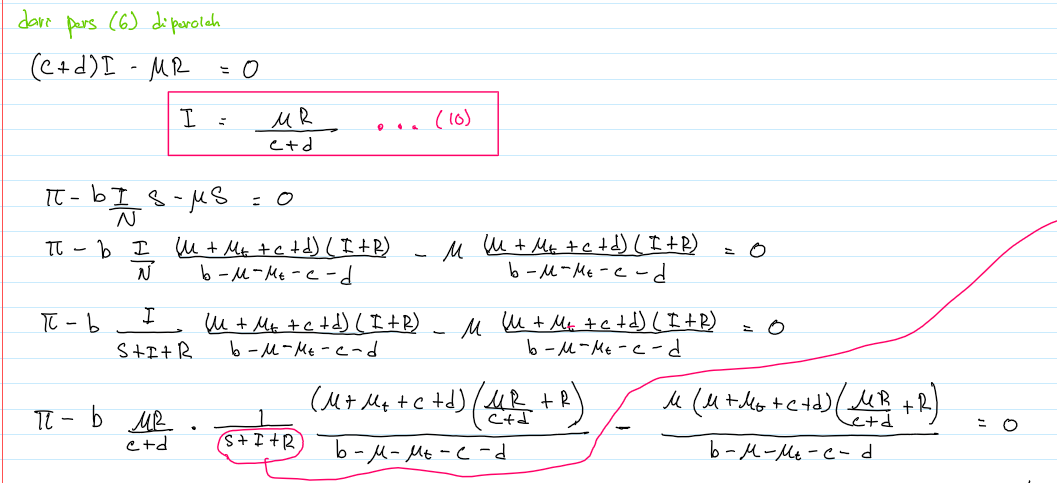 dari pers (6) diperoleh
(c+d)I - μR = 0
I = μR/(c+d) ... (10)
π - b I/N S - μS = 0
π - b I/N (μ+μ_t+c+d)(I+R)/(b-μ-μ_t-c-d) - μ (μ+μ_t+c+d)(I+R)/(b-μ-μ_t-c-d) = 0
π - b I/(S+I+R) (μ+μ_t+c+d)(I+R)/(b-μ-μ_t-c-d) - μ (μ+μ_t+c+d)(I+R)/(b-μ-μ_t-c-d) = 0
π - b μR/(c+d) · 1/(S+I+R) (μ+μ_t+c+d)(μR/(c+d) + R)/(b-μ-μ_t-c-d) - μ(μ+μ_t+c+d)(μR/(c+d) + R)/(b-μ-μ_t-c-d) = 0